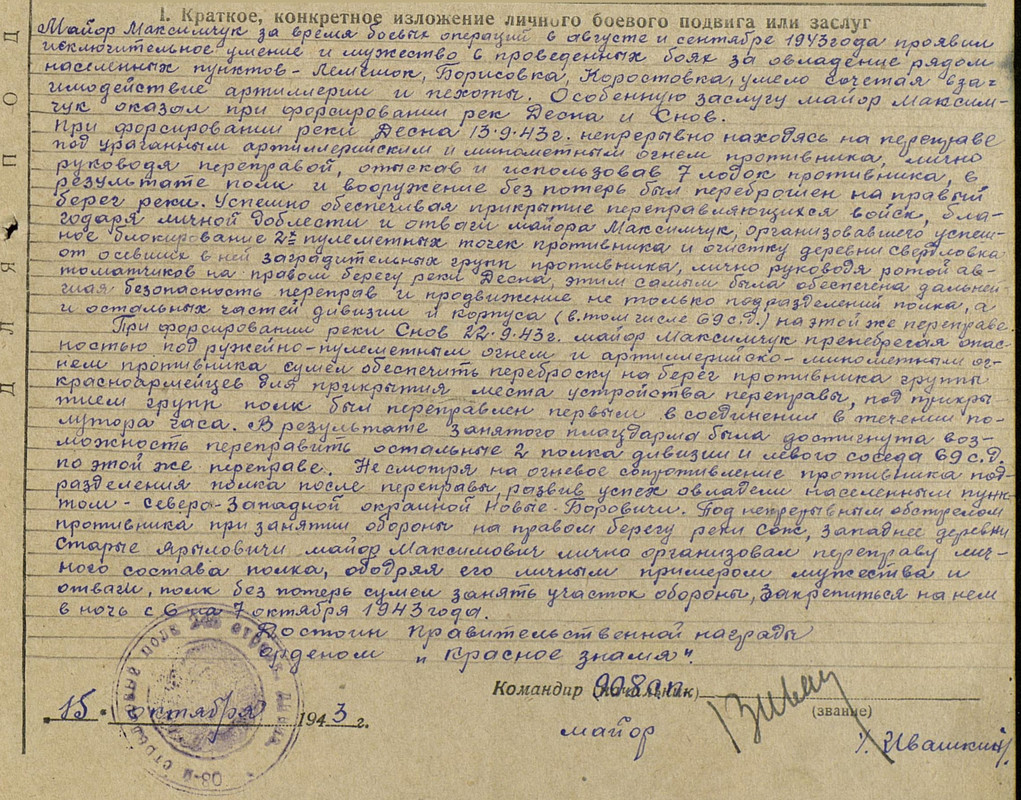 I. Краткое, конкретное изложение личного боевого подвига или заслуг
Майор Максимчук за время боевых операций в августе и сентябре 1943 года проявил
исключительное умение и мужество в проведенных боях за овладение рядом
населенных пунктов - Лемешок, Борисовка, Коростовка, умело сочетая вза-
имодействие артиллерии и пехоты. Особенную заслугу майор Максим-
чук оказал при форсировании рек Десна и Снов.
При форсировании реки Десна 13.9.43 г. непрерывно находясь на переправе
под ураганным артиллерийским и минометным огнем противника, лично
руководя переправой, отыскав и использовав 7 лодок противника, в
результате полк и вооружение без потерь был переброшен на правый
берег реки. Успешно обеспечивая прикрытие переправляющихся войск, бла-
годаря личной доблести и отваги майора Максимчук, организовавшего успеш-
ное блокирование 2х пулеметных точек противника и очистку деревни Свердловка
от осевших в ней заградительных групп противника, лично руководя ротой ав-
томатчиков на правом берегу реки Десна, этим самым была обеспечена дальней-
шая безопасность переправ и продвижение не только подразделений полка, а
и остальных частей дивизии и корпуса (в том числе 69 с.д.) на этой же переправе.
При форсировании реки Снов 22.9.43 г. майор Максимчук пренебрегая опас-
ностью под ружейно-пулеметным огнем и артиллерийско-минометным ог-
нем противника сумел обеспечить переброску на берег противника группы
красноармейцев для прикрытия места устройства переправы, под прикры
тием групп полк был переправлен первым в соединении в течении по-
лутора часа. В результате занятого плацдарма была достигнута воз-
можность переправить остальные 2 полка дивизии и левого соседа 69 с.д.
по этой же переправе. Несмотря на огневое сопротивление противника под-
разделения полка после переправы, развив успех овладели населенным пунк-
том - северо-западной окраиной Новые-Боровичи. Под непрерывным обстрелом
противника при занятии обороны на правом берегу реки Сож, западнее деревни
Старые Ярыловичи майор Максимович лично организовал переправу лич-
ного состава полка, ободряя его личным примером мужества и
отваги, полк без потерь сумел занять участок обороны, закрепиться на нем
в ночь с 6 на 7 октября 1943 года.
Достоин правительственной награды
орденом „Красное знамя".
Командир (начальник)
(звание)
„15" октября 1943 г.
майор
/Ивашкин/.
ДЛЯ ПОД